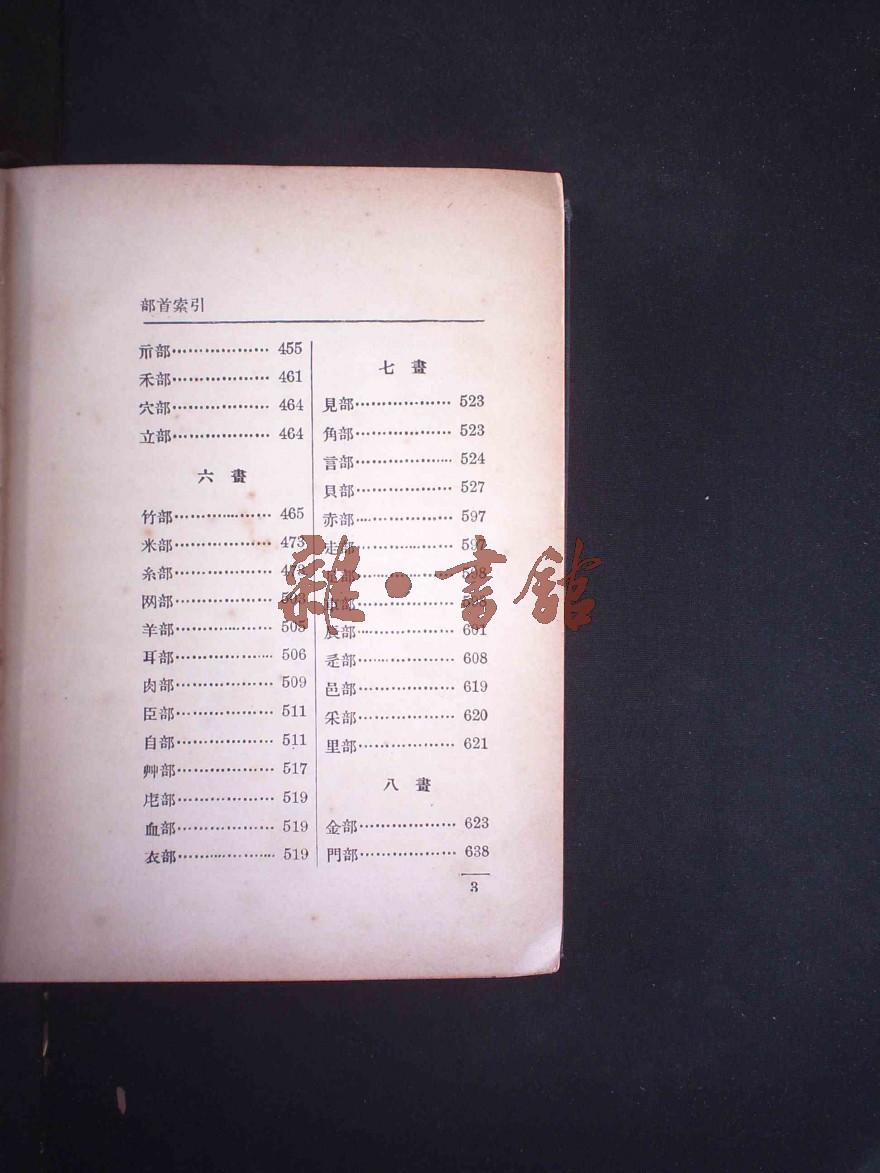 部首索引
示部·················· 455
禾部·················· 461
穴部·················· 464
立部·················· 464
六 畫
竹部·················· 465
米部·················· 473
糸部··················
网部·················· 503
羊部·················· 505
耳部·················· 506
肉部·················· 509
臣部·················· 511
自部·················· 511
艸部·················· 517
虍部·················· 519
血部·················· 519
衣部·················· 519
七 畫
見部·················· 523
角部·················· 523
言部·················· 524
貝部·················· 527
赤部·················· 597
走部·················· 597
部·················· 598
部·················· 598
部·················· 601
辵部·················· 608
邑部·················· 619
釆部·················· 620
里部·················· 621
八 畫
金部·················· 623
門部·················· 638
3
雜·書館